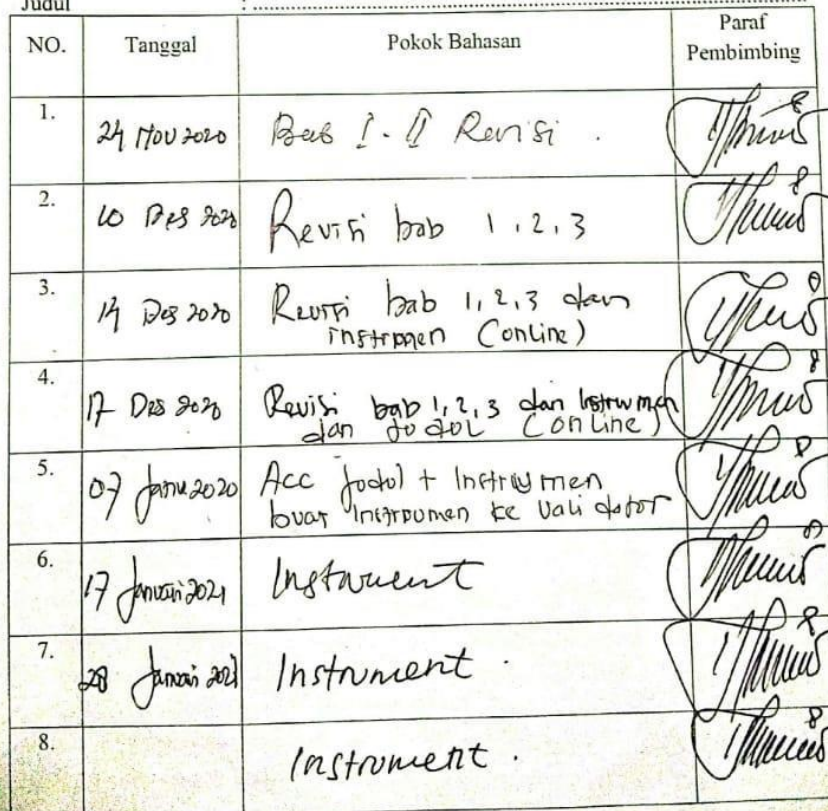 Judul : ........................................
NO. Tanggal Pokok Bahasan Paraf
Pembimbing
1. 24 Nov 2020 Bab I - II Revisi .
2. 10 Des 2020 Revisi bab 1, 2, 3
3. 14 Des 2020 Revisi bab 1, 2, 3 dan
instrumen (online)
4. 17 Des 2020 Revisi bab 1, 2, 3 dan Instrumen
dan Judul (online)
5. 07 Janu 2020 Acc Judul + Instrumen
buat instrumen ke validator
6. 17 Januari 2021 Instrument
7. 28 Januari 2021 Instrument .
8. Instrument .